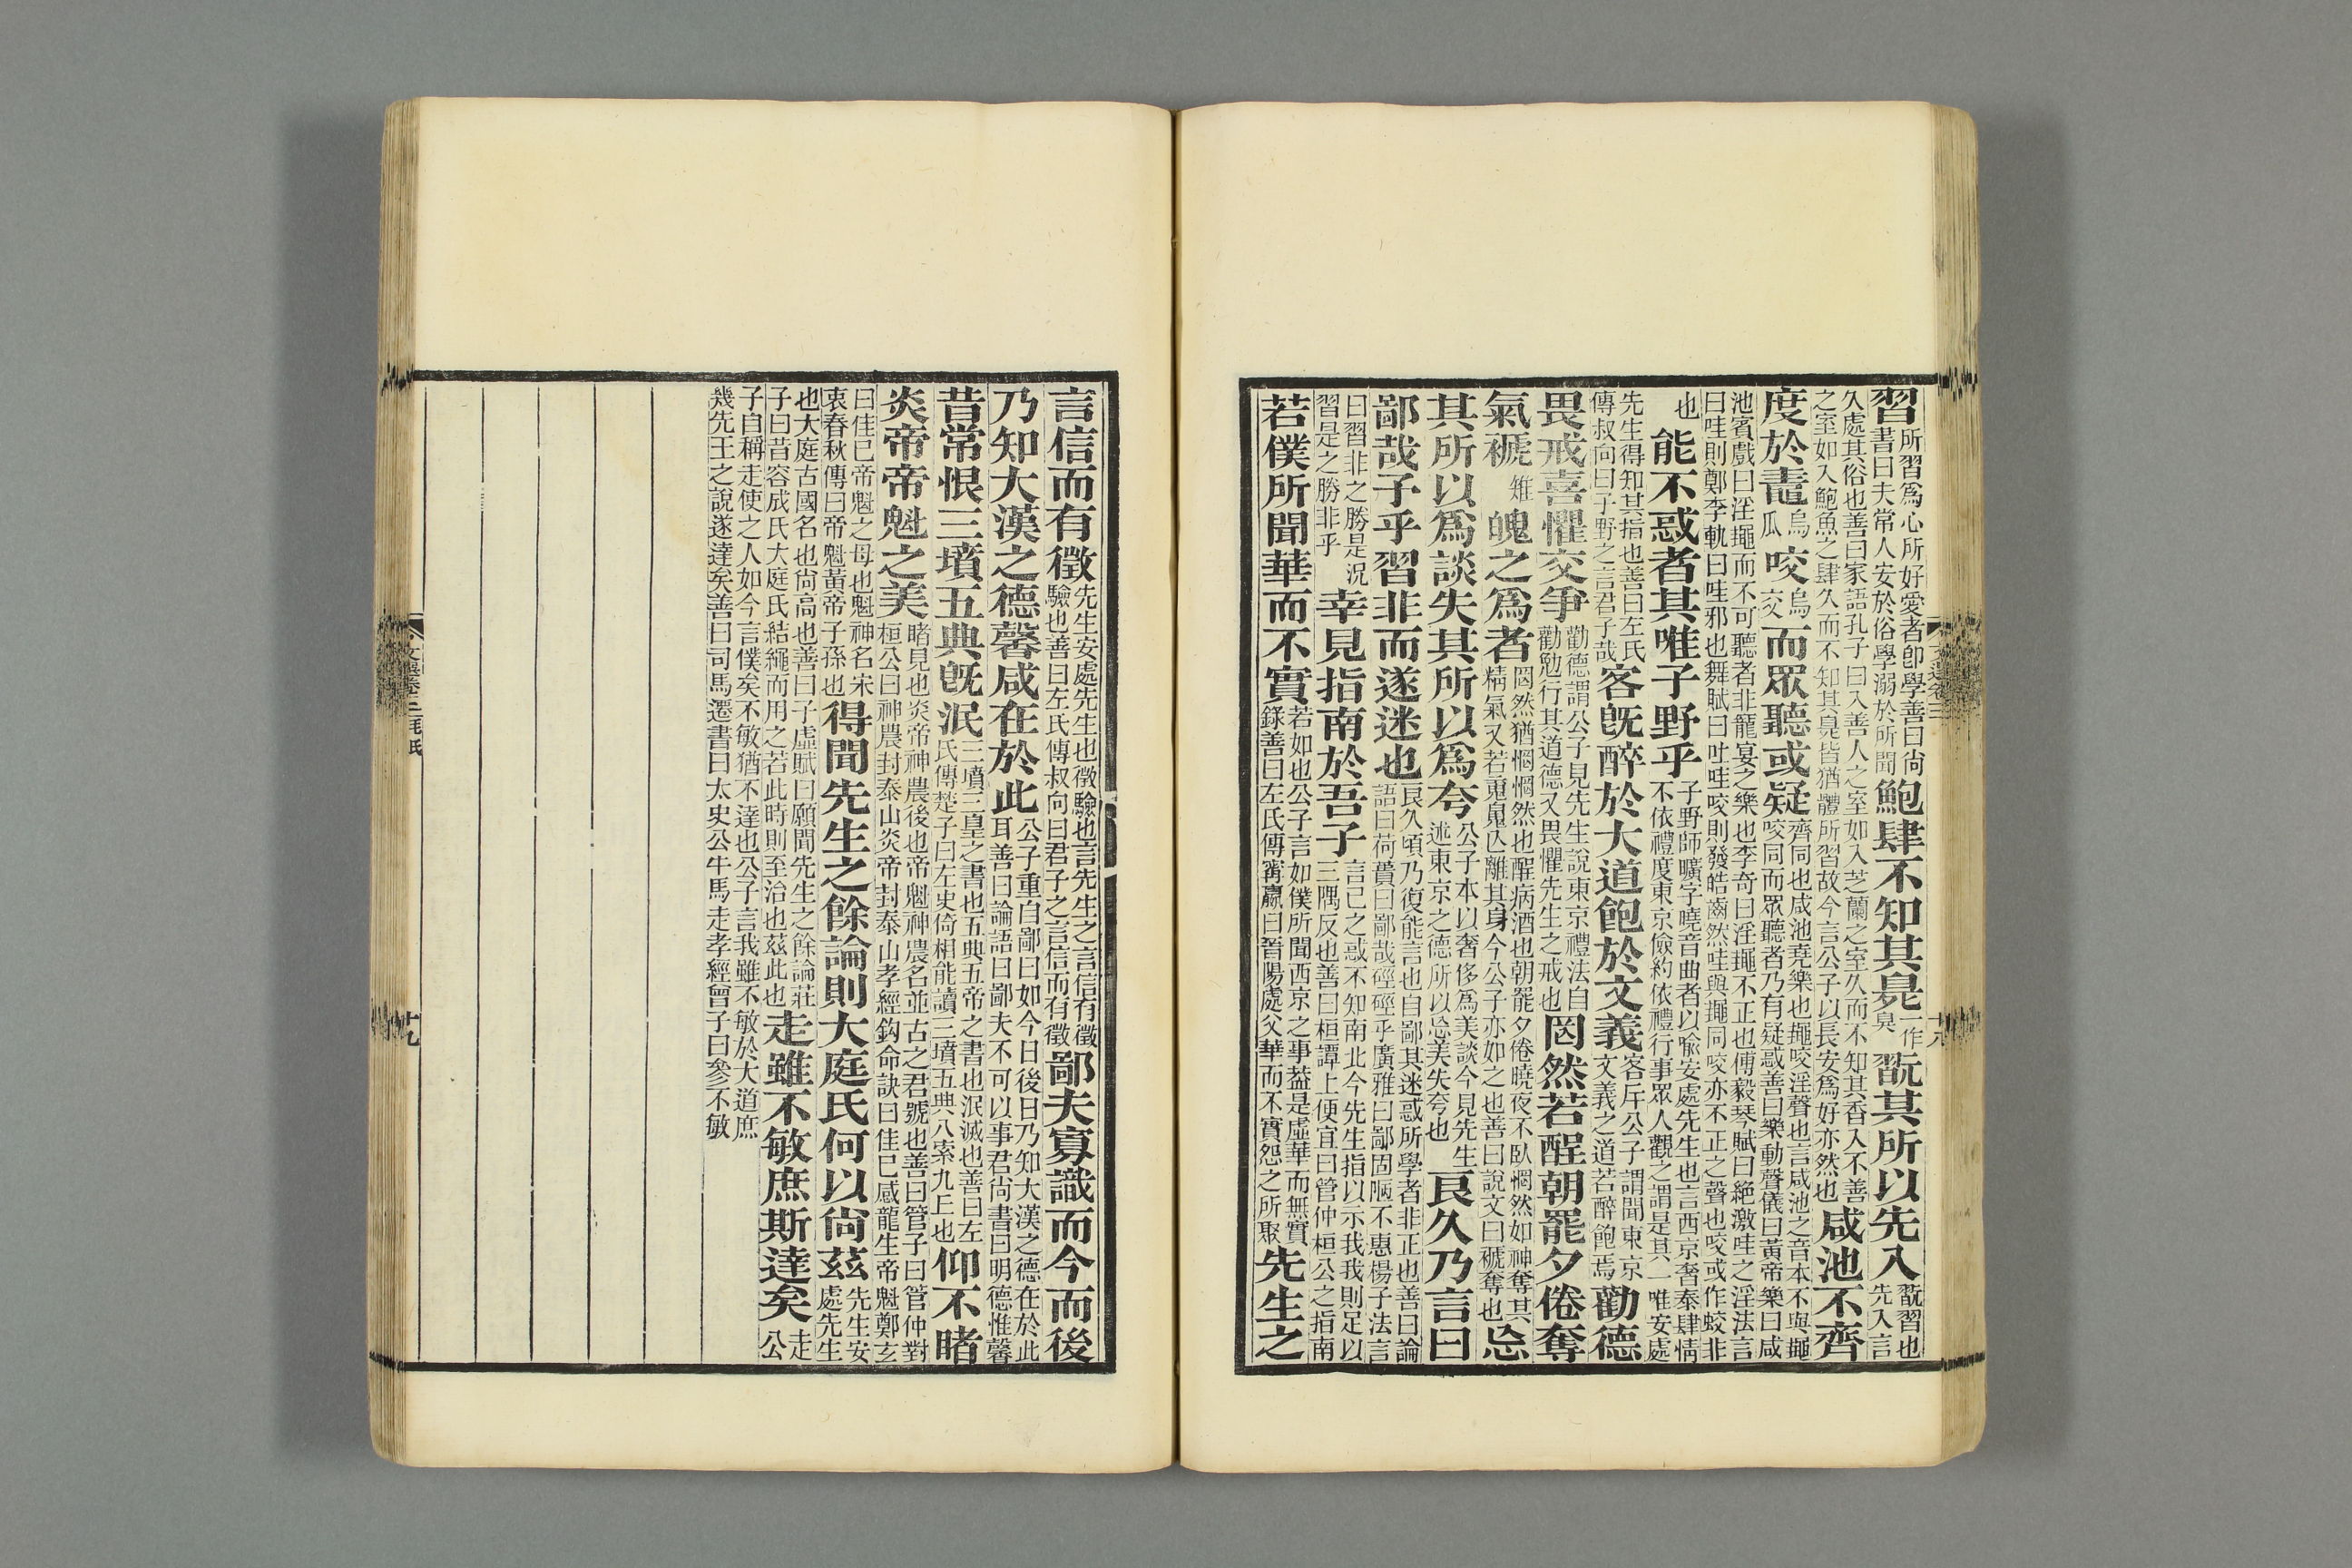 習所習爲心所好愛者卽學善曰尙書曰夫常人安於俗學溺於所聞鮑肆不知其臰一作臭翫其所以先入翫習也先入言
久處其俗也善曰家語孔子曰入善人之室如入芝蘭之室久而不知其香入不善之室如入鮑魚之肆久而不知其臭皆猶體所習故今言公子以長安爲好亦然也咸池不齊
度於䵷烏瓜咬烏交而眾聽或疑齊同也咸池堯樂也䵷咬淫聲也言咸池之音本不與䵷咬同而眾聽者乃有疑惑善曰樂動聲儀曰黃帝樂曰咸
池賓戲曰淫䵷而不可聽者非龍宴之樂也李奇曰淫䵷不正也傅毅琴賦曰絕激哇之淫法言曰哇則鄭李軌曰哇邪也舞賦曰吐哇咬則發皓齒然哇與䵷同咬亦不正之聲也咬或作蛟非
也能不惑者其唯子野乎子野師曠字曉音曲者以喩安處先生也言西京奢泰肆情不依禮度東京儉約依禮行事眾人觀之謂是其一唯安處
先生得知其指也善曰左氏傳叔向曰子野之言君子哉客旣醉於大道飽於文義客斥公子謂聞東京文義之道若醉飽焉勸德
畏戒喜懼交爭勸德謂公子見先生說東京禮法自勸勉行其道德又畏懼先生之戒也罔然若酲朝罷夕倦奪
氣褫雉魄之爲者罔然猶惘惘然也酲病酒也朝罷夕倦曉夜不臥惘然如神奪其精氣又若䰟鬼亡離其身今公子亦如之也善曰說文曰褫奪也忘
其所以爲談失其所以爲夸公子本以奢侈爲美談今見先生述東京之德所以忘美失夸也良久乃言曰
鄙哉予乎習非而遂迷也良久頃乃復能言也自鄙其迷惑所學者非正也善曰論語曰荷蕢曰鄙哉硜硜乎廣雅曰鄙固陋不惠楊子法言
曰習非之勝是況習是之勝非乎幸見指南於吾子言己之惑不知南北今先生指以示我我則足以三隅反也善曰桓譚上便宜曰管仲桓公之指南
若僕所聞華而不實若如也公子言如僕所聞西京之事葢是虛華而無實錄善曰左氏傳甯嬴曰晉陽處父華而不實怨之所聚先生之
言信而有徵先生安處先生也徵驗也言先生之言信有徵驗也善曰左氏傳叔向曰君子之言信而有徵鄙夫寡識而今而後
乃知大漢之德馨咸在於此公子重自鄙曰如今日後日乃知大漢之德在於此耳善曰論語曰鄙夫不可以事君尙書曰明德惟馨
昔常恨三墳五典旣泯三墳三皇之書也五典五帝之書也泯滅也善曰左氏傳楚子曰左史倚相能讀三墳五典八索九丘也仰不睹
炎帝帝魁之美睹見也炎帝神農後也帝魁神農名並古之君號也善曰管子曰管仲對桓公曰神農封泰山炎帝封泰山孝經鈎命訣曰佳已感龍生帝魁鄭玄
曰佳已帝魁之母也魁神名宋衷春秋傳曰帝魁黃帝子孫也得聞先生之餘論則大庭氏何以尙茲先生安處先生
也大庭古國名也尙高也善曰子虛賦曰願聞先生之餘論莊子曰昔容成氏大庭氏結繩而用之若此時則至治也茲此也走雖不敏庶斯達矣走公
子自稱走使之人如今言僕矣不敏猶不達也公子言我雖不敏於大道庶幾先王之說遂達矣善曰司馬遷書曰太史公牛馬走孝經曾子曰參不敏
文選卷三
廿九